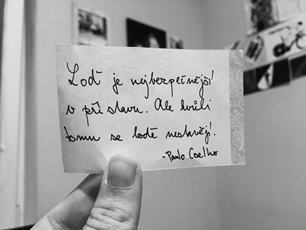 Loď je nejbezpečnější
v přístavu. Ale kvůli
tomu se lodě nestaví!
- Paulo Coelho